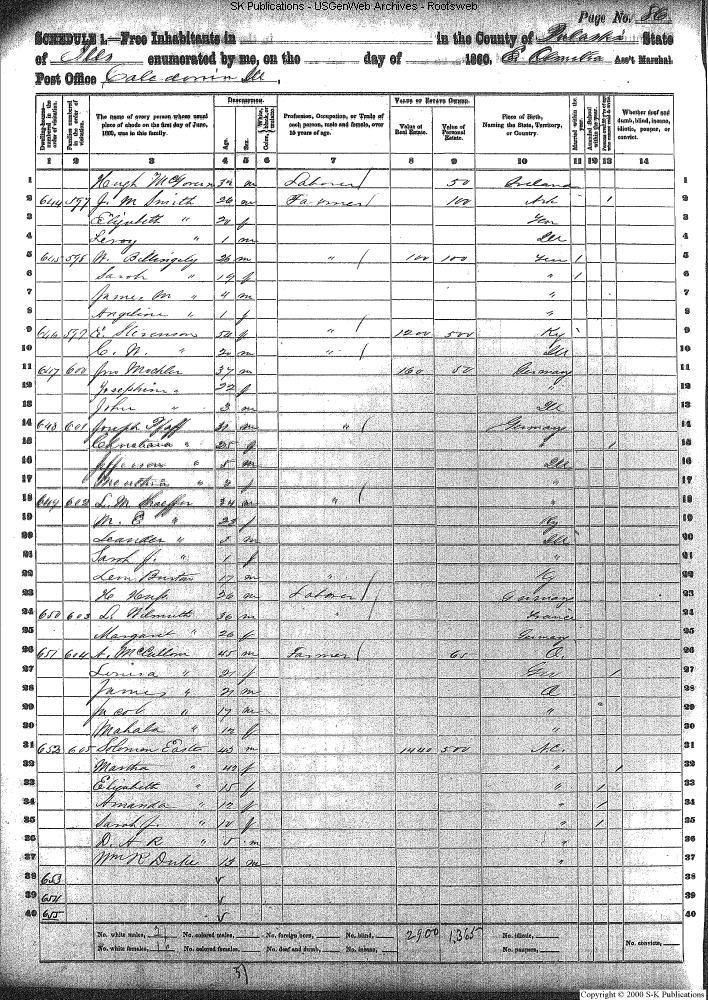 SK Publications - USGenWeb Archives - Rootsweb
Page No. 86
SCHEDULE 1.—Free Inhabitants in in the County of Pulaski State
of Ills enumerated by me, on the day of 1860. Ass't Marshal.
Post Office Caledonia Ill,
DESCRIPTION. VALUE OF ESTATE OWNED.
Dwelling-houses—numbered in the order of visitation.
Families numbered in the order of visitation.
The name of every person whose usual place of abode on the first day of June, 1860, was in this family.
Age. Sex. Color, White, black, or mulatto.
Profession, Occupation, or Trade of each person, male and female, over 15 years of age.
Value of Real Estate. Value of Personal Estate.
Place of Birth, Naming the State, Territory, or Country.
Married within the year. Attended School within the year.
Whether deaf and dumb, blind, insane, idiotic, pauper, or convict.
1 2 3 4 5 6 7 8 9 10 11 12 13 14
1 Hugh McGovern m Laborer / 50 Ireland 1
2 644 597 J. M Smith 26 m Farmer / 100 1 2
3 Elizabeth " 20 f Ten 3
4 Leroy " 1 m Ill 4
5 645 598 W. Billingsly 26 m " / 100 100 Ten 1 5
6 Sarah " 19 f " 1 6
7 James M " 4 m " 7
8 Angeline " 1 f " 8
9 646 599 Stevenson f " / 1200 500 Ky 9
10 " 20 m " / Ill 10
11 647 600 Jno 37 m 160 50 Germany 11
12 Josephine " 22 f " 12
13 John " 3 m Ill 13
14 648 601 Joseph Pfaff m " / Germany 14
15 " 25 f " 1 15
16 Jefferson " 5 m Ill 16
17 " f " 17
18 649 602 L. M Shaeffer 34 m " / " 18
19 M. E " 23 f Ky 19
20 Leander " 3 m Ill 20
21 Sarah J. " 1 f " 21
22 Lem Burton 17 m " Ky 22
23 H 26 m Laborer / Germany 23
24 650 603 Wilmuth 36 m " / France 24
25 Margaret " 26 f Germany 25
26 651 604 A. McCullom 45 m Farmer / 65 O. 26
27 Louisa " f 1 27
28 James " 21 m O 28
29 Jacob " 17 m " 29
30 Mahala " 12 f " 30
31 652 605 Solomon Easter 43 m 1440 500 N.C. 31
32 Martha " f " 1 32
33 Elizabeth " 15 f " 1 33
34 Amanda " 12 f " 1 34
35 Sarah J. " 10 f " 1 35
36 D. A R " 5 m " 36
37 Wm R Duke 13 m " 37
38 653 38
39 654 39
40 655 40
No. white males, 21 No. colored males, No. foreign born, No. blind, 2900 1,365 No. idiotic,
No. white females, 16 No. colored females, No. deaf and dumb, No. insane, No. paupers, No. convicts,
Copyright © 2000 S-K Publications